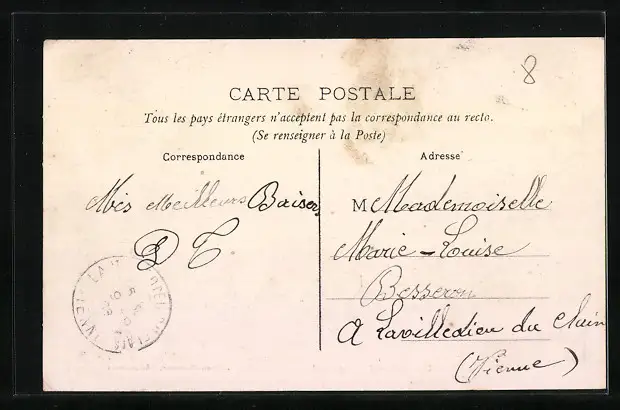 8
CARTE POSTALE
Tous les pays étrangers n'acceptent pas la correspondance au recto.
(Se renseigner à la Poste)
Correspondance
Adresse
Mes Meilleurs Baisers
D T
M Mademoiselle
Marie-Louise
Besseron
A Lavilledieu du Clain
(Vienne)